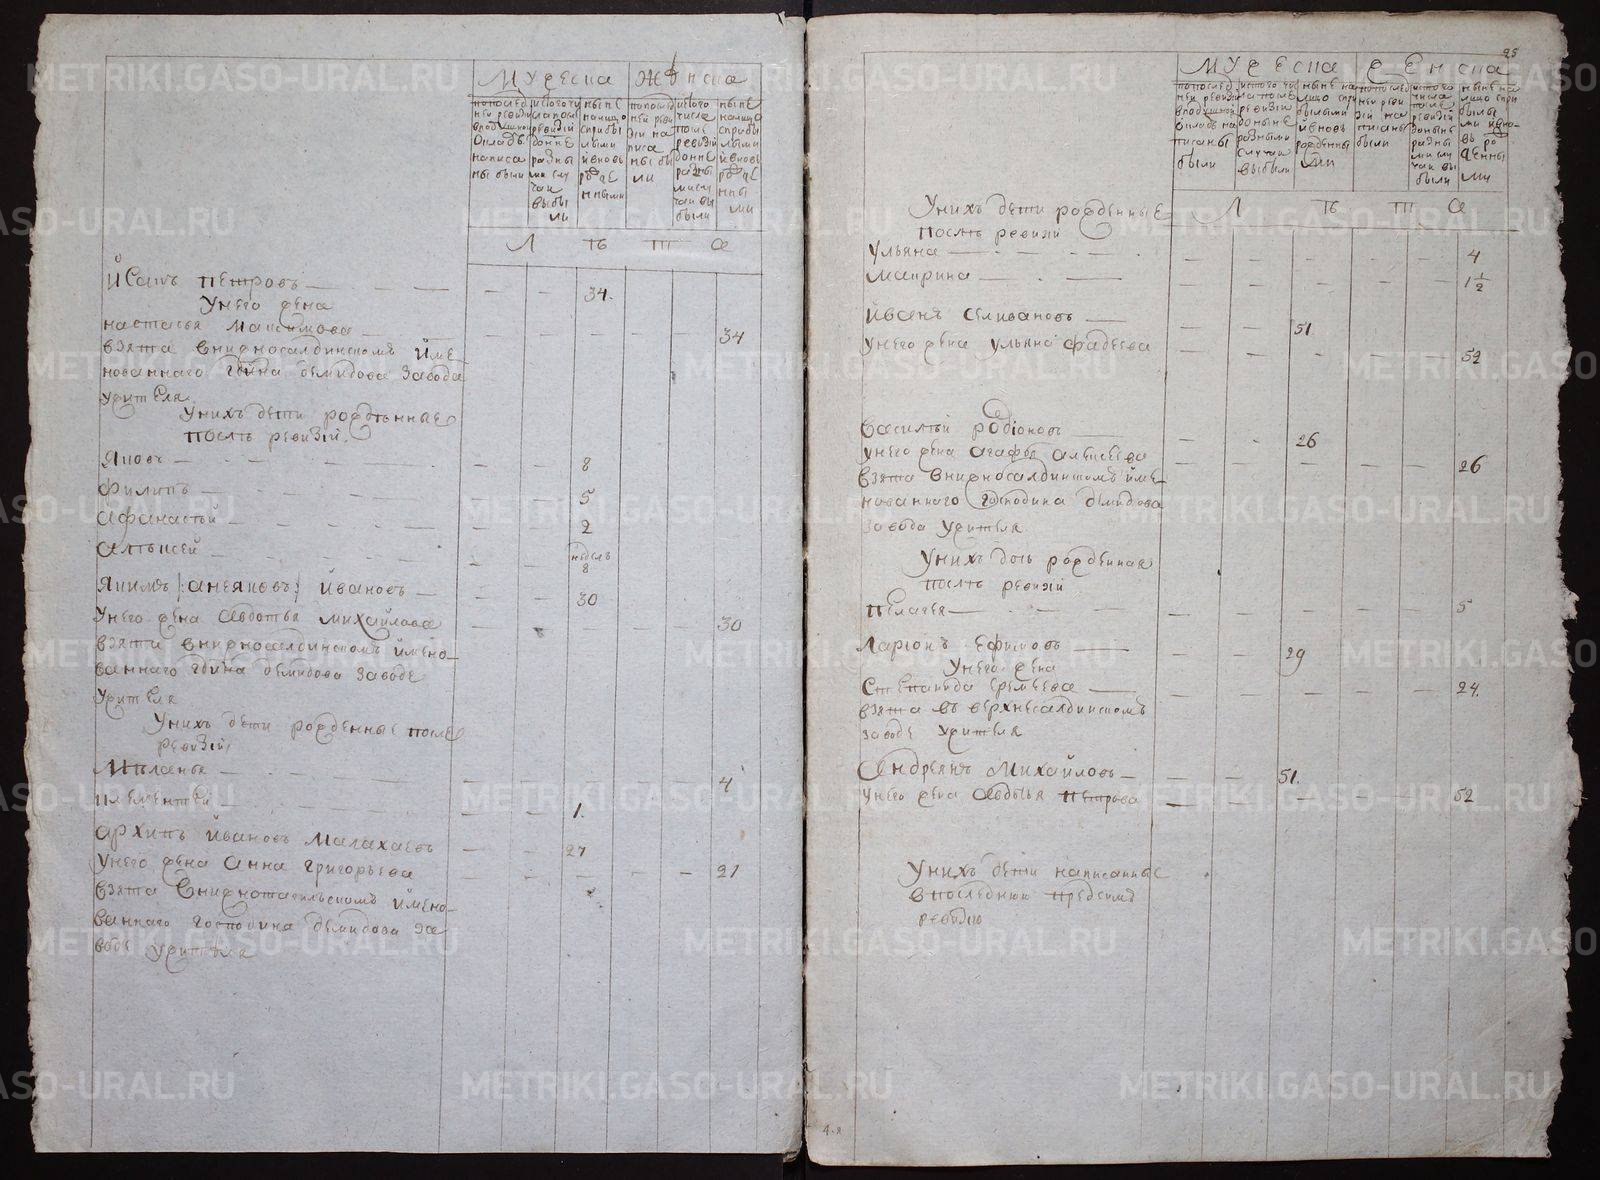 Мужеска Женска
по послед
ней ревизи
в подушной
окладъ
написа
ны были
из того чи
сла после
ревизiй
до нне
разны
ми слу
чаи
выбы
ли
ныне
на лицо
с прибы
лыми
и вновь
рожде
нными
по послед
ней реви
зiи на
писа
ны бы
ли
из того
числа
после
ревизiй
до нне
разны
ми слу
чаи вы
были
ныне
на лицо
с прибы
лыми
и вновь
рожде
нны
ми
Л ѣ т а
Исакъ Петровъ 34.
У него жена
Настасья Максимова 34
взята в Нижносалдинскомъ Име
нованнаго Гдина Демидова завода
жителя
У нихъ дети рожденные
послѣ ревизiй.
Яковъ 8
Филипъ 5
Афанасей 2
Алѣксей недель 8
Якимъ /: Анеяковъ :/ Ивановъ 30
У него жена Авдотья Михайлова 30
взята в Нижносалдинскомъ Имено
ваннаго Гдина Демидова заводе
жителя
У нихъ дети рожденные после
ревизiй
Мѣланья 4
Клементей 1.
Архипъ Ивановъ Малахаевъ 27
У него жена Анна Григорьева 21
взята в Нижнотагильскомъ Имено
ваннаго Господина Демидова за
воде жителя
25
Мужеска Женска
по послед
ней ревизи
в подушной
окладъ на
писаны
были
из того чи
сла после
ревизiй
до ныне
разными
случаи
выбыли
ныне на
лицо с при
былыми
и вновь
рожденны
ми
по послед
ней реви
зiй на
писаны
были
из того
числа
после
ревизiй
до ныне
разны
ми слу
чаи вы
были
ныне на
лицо с при
былы
ми и вно
вь ро
жденны
ми
Л ѣ т а
У нихъ дети рожденные
послѣ ревизiй
Ульяна 4
Маврина 1 1/2
Иванъ Селивановъ 51
У него жена Ульяна Фадеева 52
Василей Родiоновъ 26
У него жена Агафья Алексеева 26
взята в Нижносалдинскомъ Име
нованнаго Господина Демидова
завода жителя
У нихъ дочь рожденная
послѣ ревизiй
Пелагея 5
Ларiонъ Ефимовъ 29
У него жена
Степанида Еремеева 24.
взята въ Верхнесалдинскомъ
заводе жителя
Андреянъ Михайловъ 51.
У него жена Авдотья Петрова 52
У нихъ дети написанные
в последнюю предсимъ
ревизiю